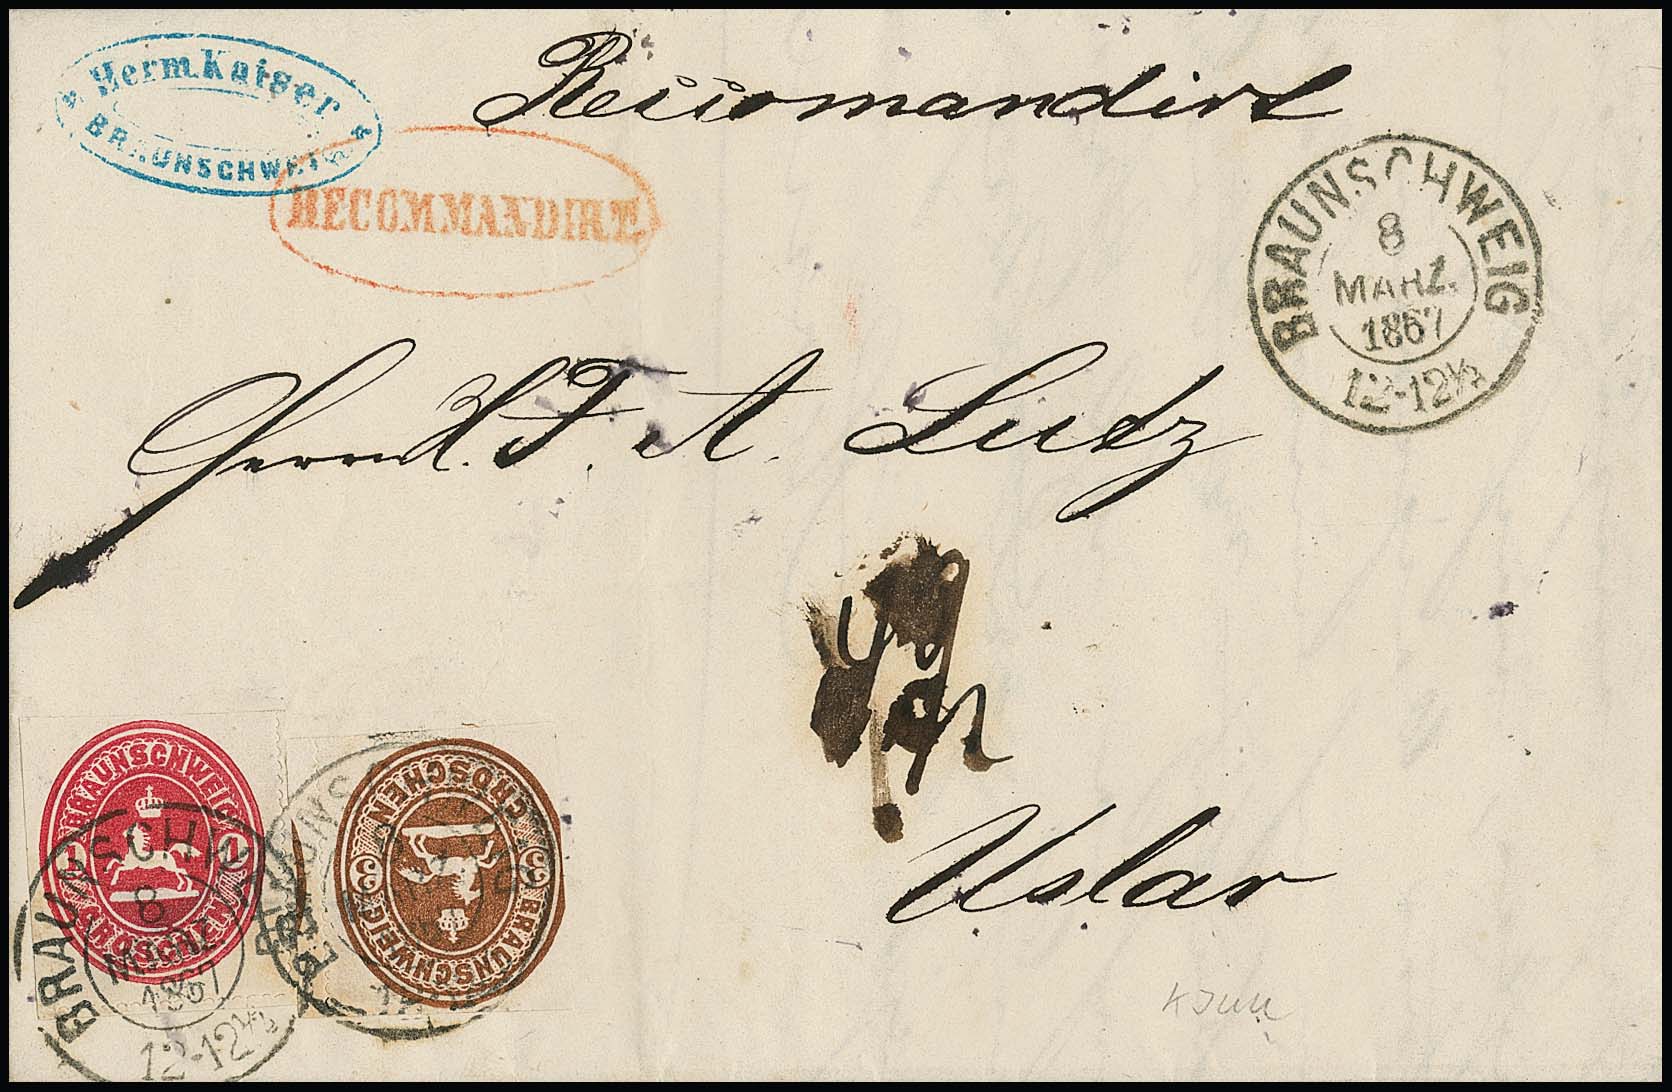 Herm. Kaiser
BRAUNSCHWEIG
Recommandirt
RECOMMANDIRT.
BRAUNSCHWEIG
8
MÄRZ.
1867
12-12½
Herrn F. A. Lutz
Uslar
BRAUNSCHWEIG
1 1
GROSCHEN
BRAUNSCHWEIG
8
MÄRZ
1867
12-12½
BRAUNSCHWEIG
3 3
GROSCHEN
BRAUNSCHWEIG